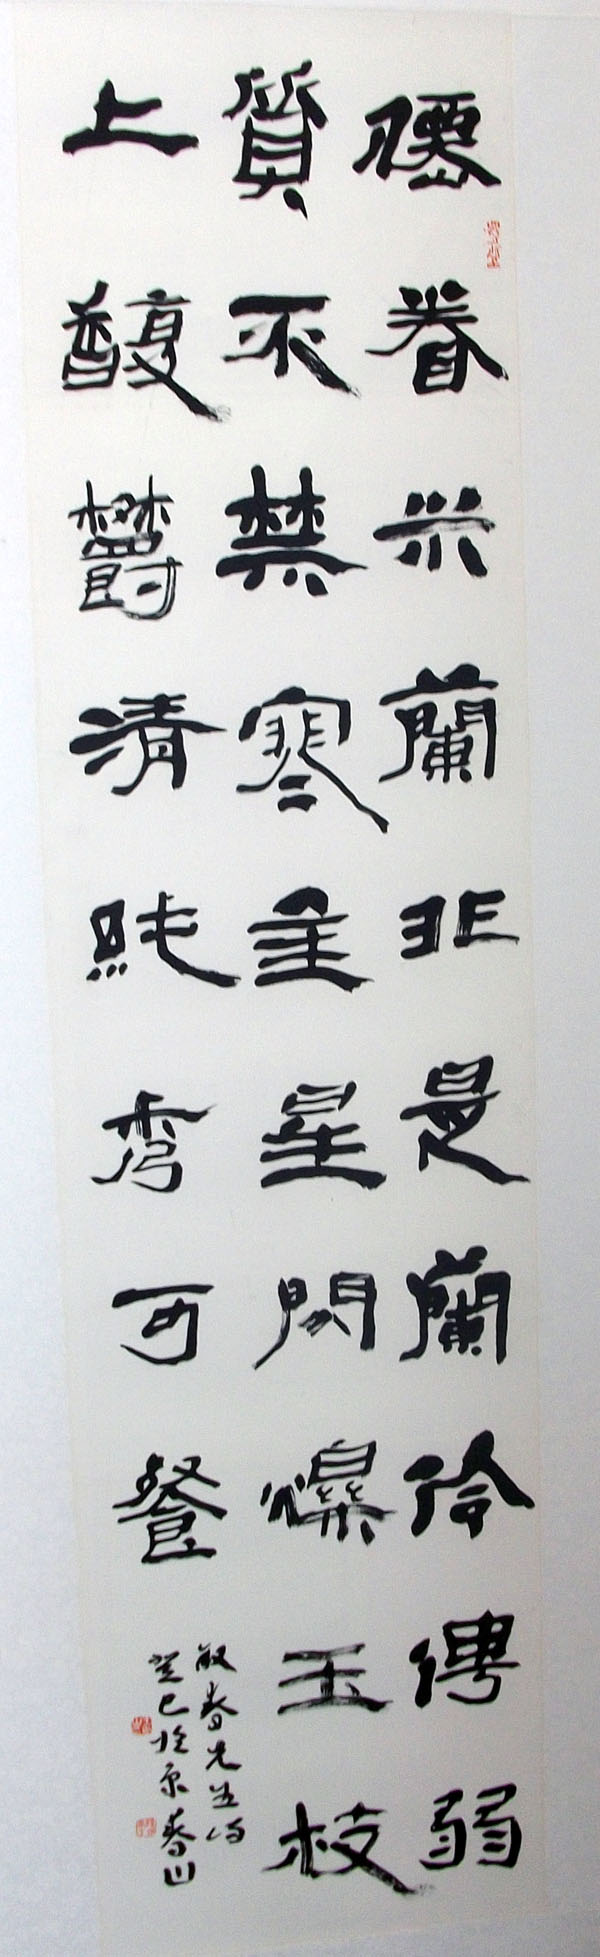 僊眷米蘭非是蘭伶俜弱
質不禁寒金星閃爍玉枝
上馥鬱清純秀可餐
敏春先生詩
癸巳於京春山